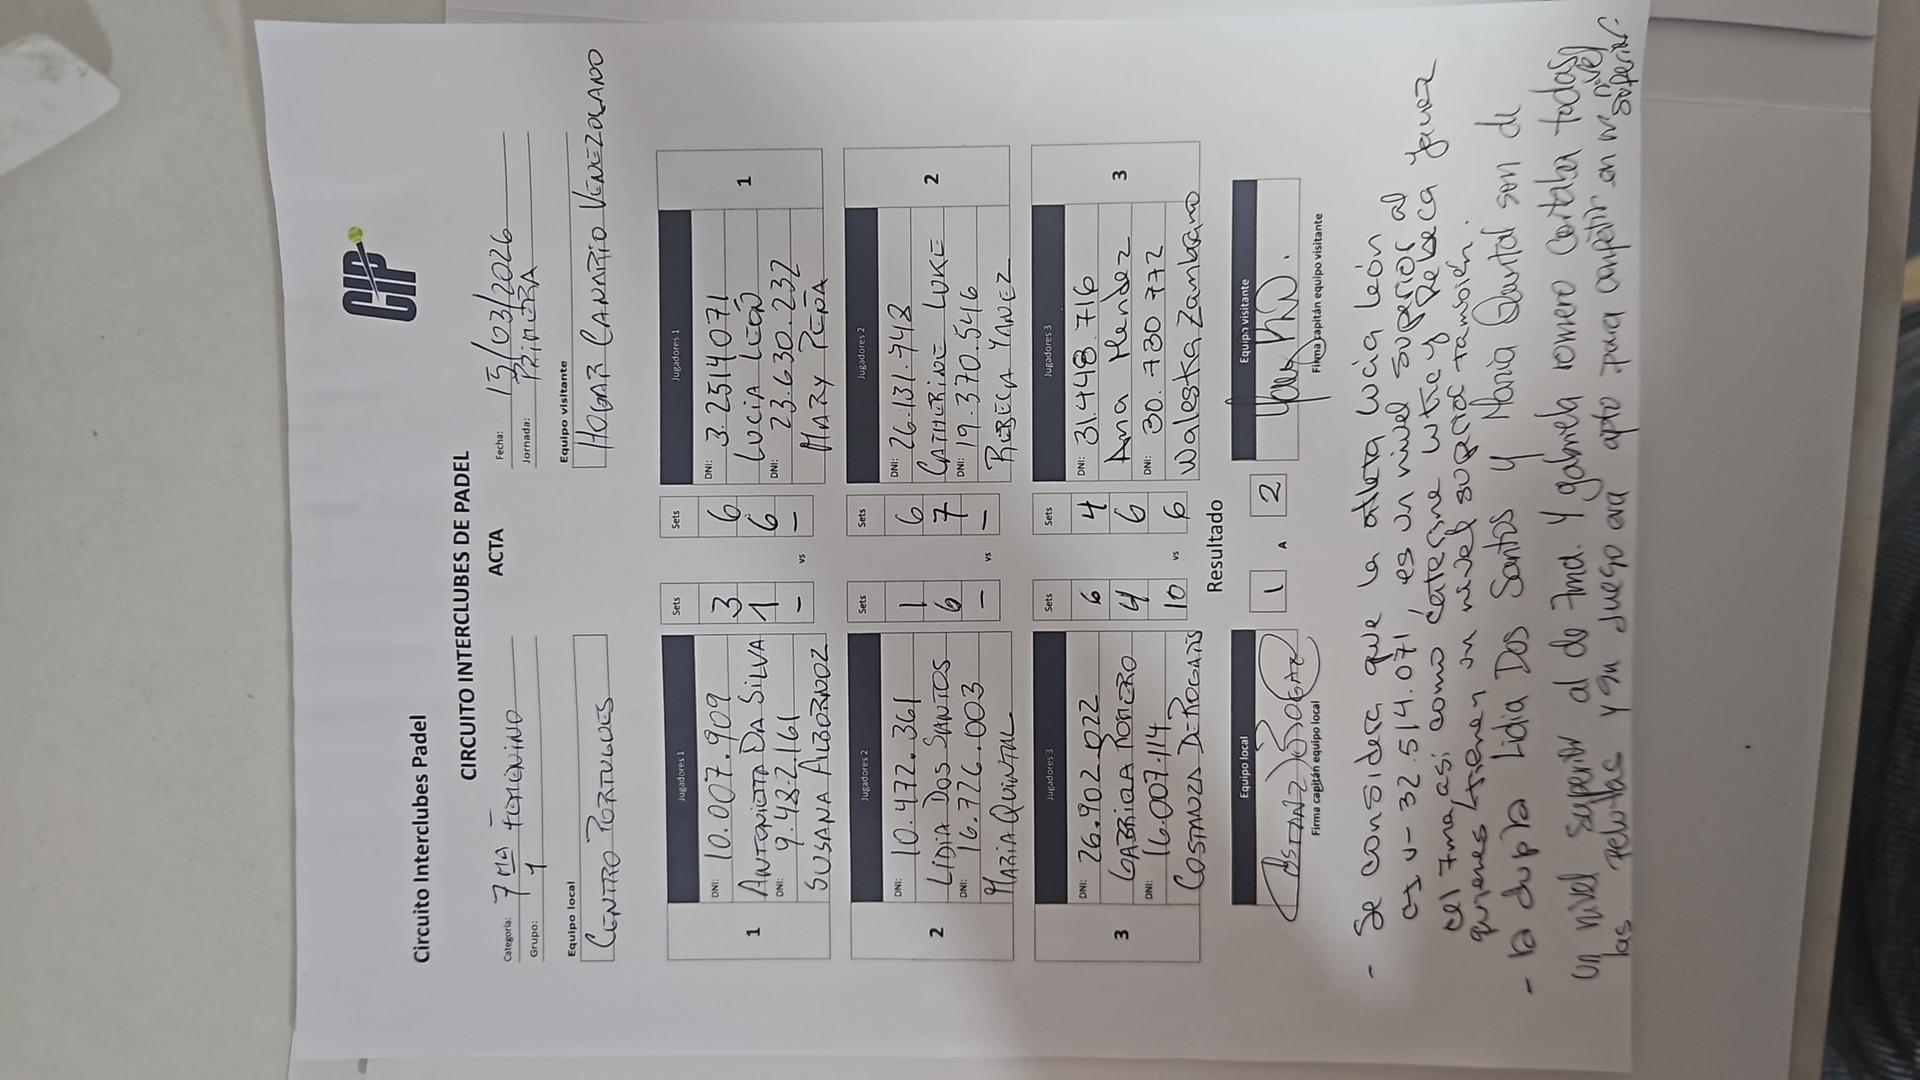 CIP
Circuito Interclubes Padel
CIRCUITO INTERCLUBES DE PADEL
ACTA
Categoría: 7MA FEMENINO
Grupo: 1
Fecha: 15/03/2026
Jornada: PRIMERA
Equipo local
CENTRO PORTUGUES
Equipo visitante
HOGAR CANARIO VENEZOLANO
Jugadores 1 Sets Sets Jugadores 1
1
DNI: 10.007.909 3 6 DNI: 3.2514071
ANTONIETA DA SILVA 1 6 LUCIA LEÓN
DNI: 9.482.161 - vs - DNI: 23.630.232
SUSANA ALBORNOZ MARY PEÑA
1
Jugadores 2 Sets Sets Jugadores 2
2
DNI: 10.472.361 1 6 DNI: 26.131.748
LIDIA DOS SANTOS 6 7 CATHERINE LUKE
DNI: 16.726.003 - vs - DNI: 19.370.546
MARIA QUINTAL REBECA YANEZ
2
Jugadores 3 Sets Sets Jugadores 3
3
DNI: 26.902.022 6 4 DNI: 31.448.716
GABRIELA ROMERO 4 6 Ana Mendez
DNI: 16.007.114 10 vs 6 DNI: 30.730.772
COSTANZA Waleska Zambrano
3
Resultado
Equipo local 1 A 2 Equipo visitante
Firma capitán equipo local
Firma capitán equipo visitante
- Se considera que la atleta Lucía León
V- 32.514.071, es un nivel superior al
7ma, así como Caterine y Rebeca
quienes tienen un nivel superior también.
- la dupla Lidia Dos Santos y María Quintal son de
un nivel superior al de 7ma. Y gabriela romero cortaba todas
las pelotas y su juego era apto para competir en un nivel
superior.